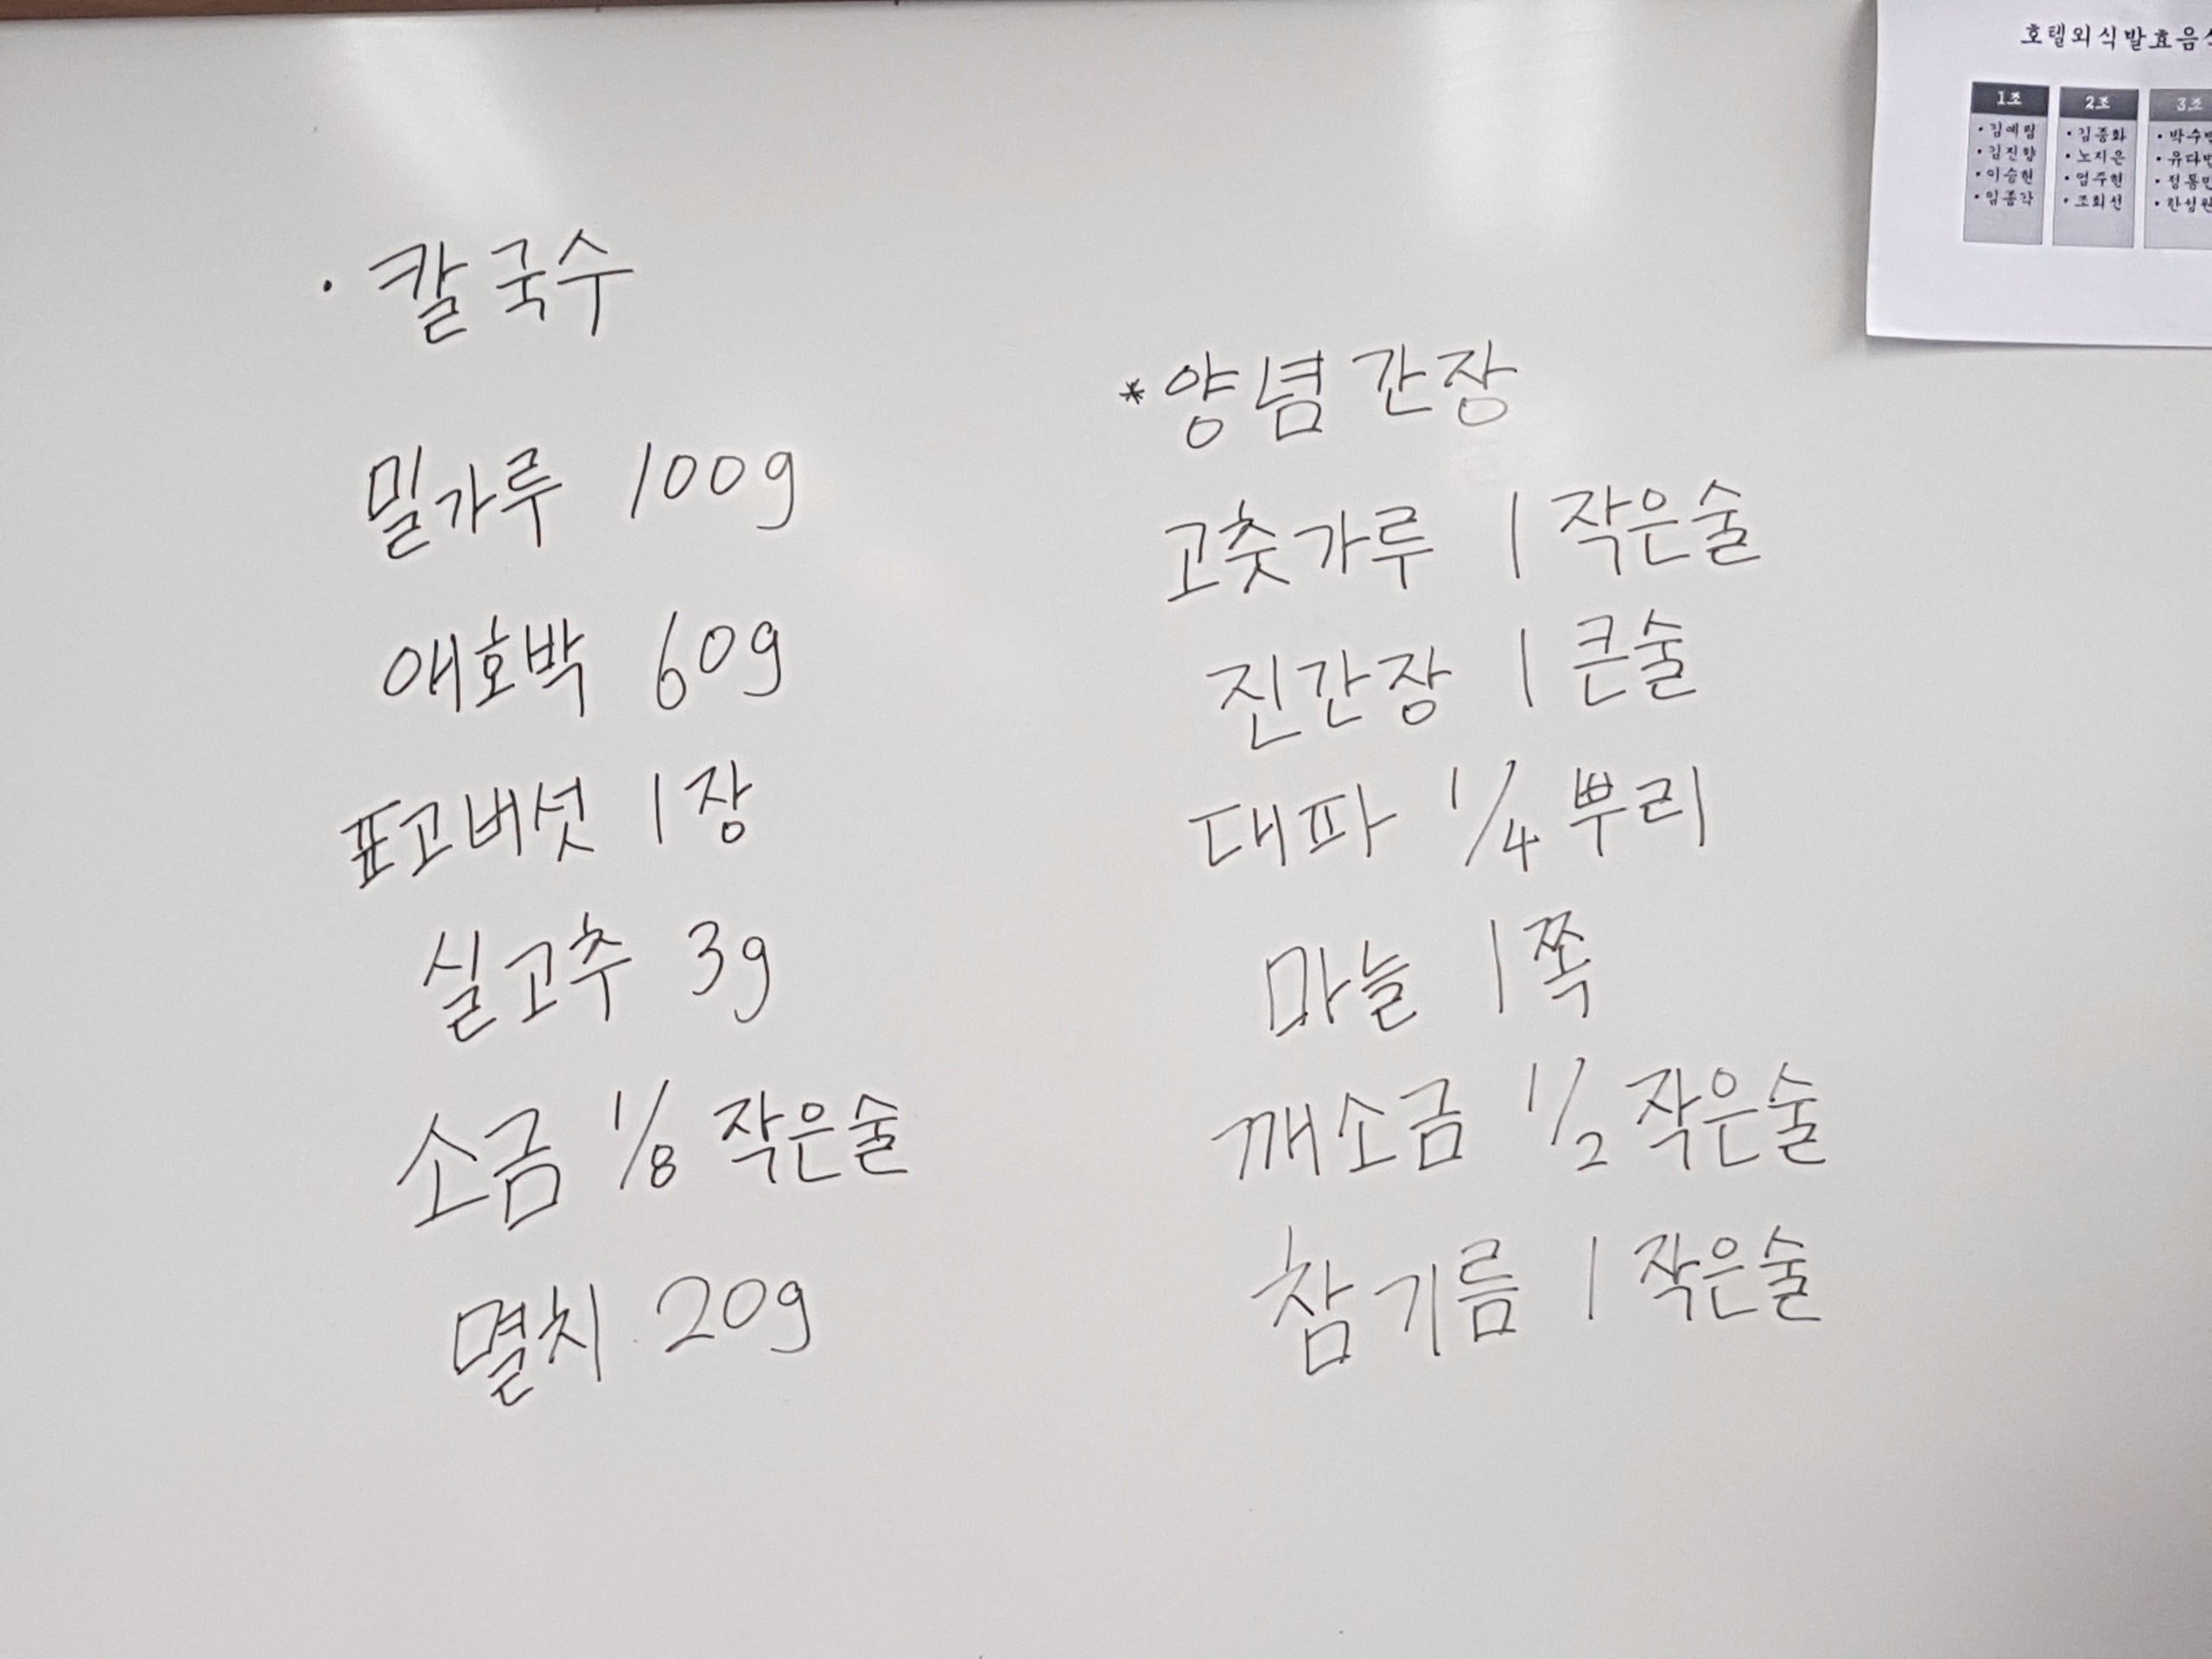 · 칼국수
밀가루 100g
애호박 60g
표고버섯 1장
실고추 3g
소금 1/8 작은술
멸치 20g
*양념간장
고춧가루 1 작은술
진간장 1 큰술
대파 1/4 뿌리
마늘 1쪽
깨소금 1/2 작은술
참기름 1 작은술
호텔외식발효음
1조
• 김예림
• 김진향
• 이승현
• 임종각
2조
• 김종화
• 노지은
• 엄주현
• 조희선
3조